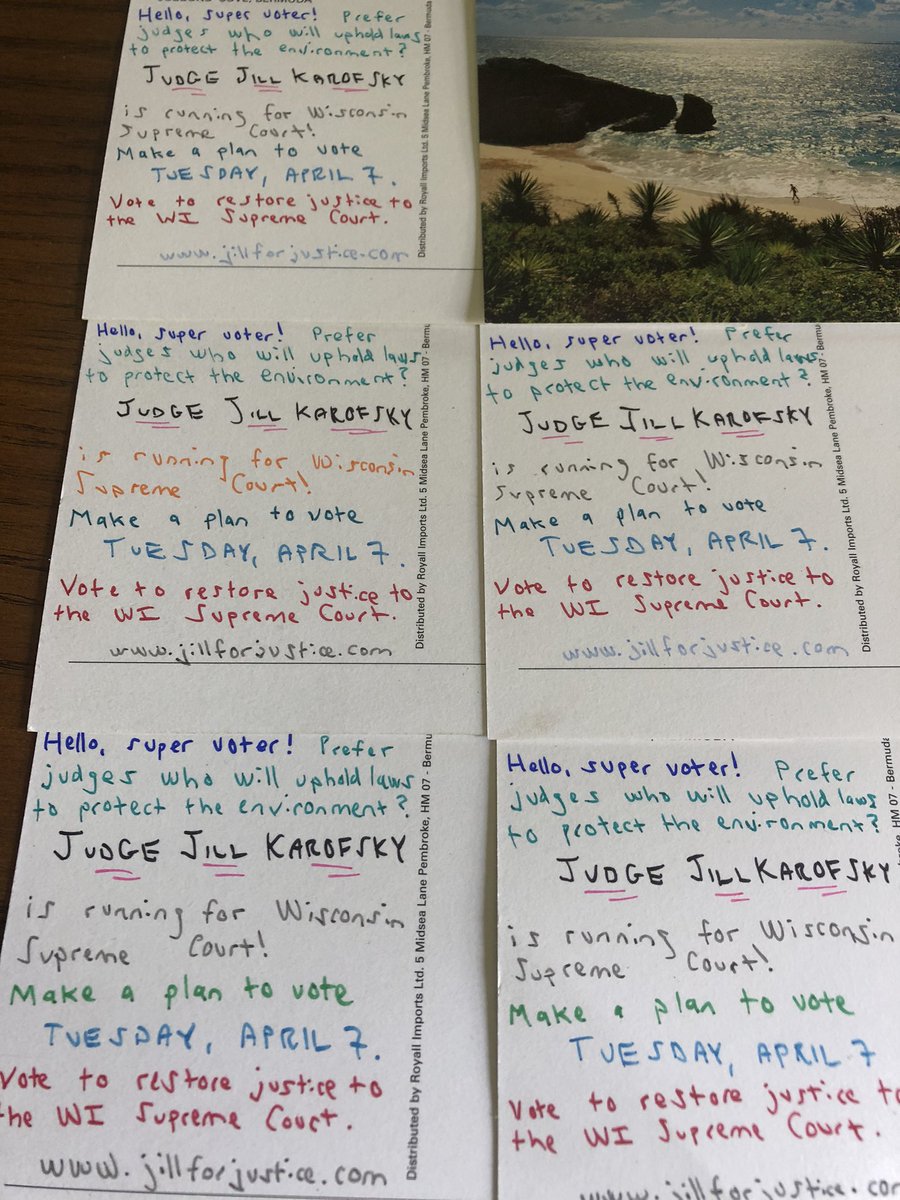 COVE, BERMUDA
Hello, super voter! Prefer
judges who will uphold laws
to protect the environment?
JUDGE JILL KAROFSKY
is running for Wisconsin
Supreme Court!
Make a plan to vote
TUESDAY, APRIL 7.
Vote to restore justice to
the WI Supreme Court.
www.jillforjustice.com
Distributed by Royall Imports Ltd. 5 Midsea Lane Pembroke, HM 07 - Bermuda
Hello, super voter! Prefer
judges who will uphold laws
to protect the environment?
JUDGE JILL KAROFSKY
is running for Wisconsin
Supreme Court!
Make a plan to vote
TUESDAY, APRIL 7.
Vote to restore justice to
the WI Supreme Court.
www.jillforjustice.com
Distributed by Royall Imports Ltd. 5 Midsea Lane Pembroke, HM 07 - Bermu
Hello, super voter! Prefer
judges who will uphold laws
to protect the environment?
JUDGE JILL KAROFSKY
is running for Wisconsin
Supreme Court!
Make a plan to vote
TUESDAY, APRIL 7.
Vote to restore justice to
the WI Supreme Court.
www.jillforjustice.com
Distributed by Royall Imports Ltd. 5 Midsea Lane Pembroke, HM 07 - Bermu
Hello, super voter! Prefer
judges who will uphold laws
to protect the environment?
JUDGE JILL KAROFSKY
is running for Wisconsin
Supreme Court!
Make a plan to vote
TUESDAY, APRIL 7.
Vote to restore justice to
the WI Supreme Court.
www.jillforjustice.com
Distributed by Royall Imports Ltd. 5 Midsea Lane Pembroke, HM 07 - Bermu
Hello, super voter! Prefer
judges who will uphold laws
to protect the environment?
JUDGE JILL KAROFSKY
is running for Wisconsin
Supreme Court!
Make a plan to vote
TUESDAY, APRIL 7
Vote to restore justice to
the WI Supreme Court.
www.jillforjustice.com
HM 07 - Bermuda